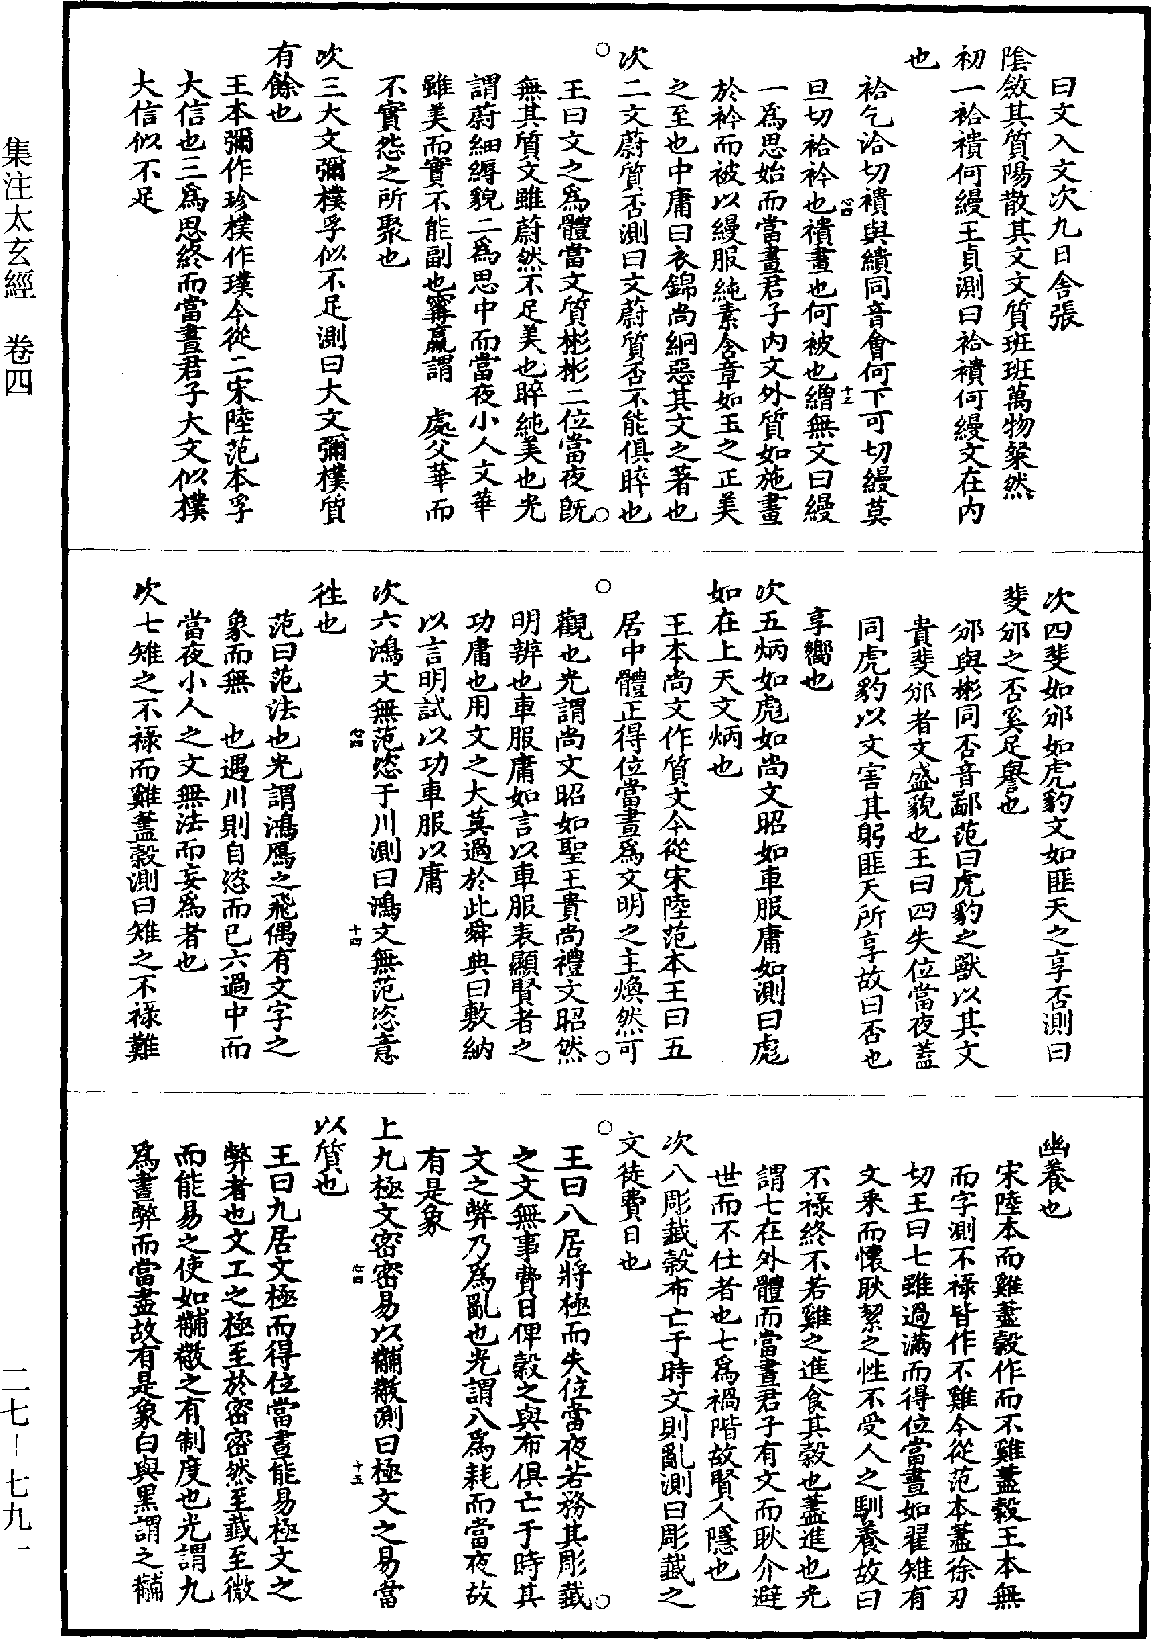 曰文入文次九日舍張
陰斂其質陽散其文文質班班萬物粲然
初一袷襀何縵玉貞測曰袷襀何縵文在內
也
袷乞洽切襀與繢同音會何下可切縵莫
旦切袷衿也襀畫也何被也繒無文曰縵
一為思始而當晝君子內文外質如施畫
於衿而被以縵服純素含章如玉之正美
之至也中庸曰衣錦尚絅惡其文之著也
次二文蔚質否測曰文蔚質否不能俱睟也
王曰文之為體當文質彬彬二位當夜旣
無其質文雖蔚然不足美也睟純美也光
謂蔚細縟貌二為思中而當夜小人文華
雖美而實不能副也甯嬴謂 處父華而
不實怨之所聚也
次三大文彌樸孚似不足測曰大文彌樸質
有餘也
王本彌作珍樸作璞今從二宋陸范本孚
大信也三為思終而當晝君子大文似樸
大信似不足
次四斐如邠如虎豹文如匪天之享否測曰
斐邠之否奚足譽也
邠與彬同否音鄙范曰虎豹之獸以其文
貴斐邠者文盛貌也王曰四失位當夜蓋
同虎豹以文害其躬匪天所享故曰否也
享嚮也
次五炳如彪如尚文昭如車服庸如測曰彪
如在上天文炳也
王本尚文作質文今從宋陸范本王曰五
居中體正得位當晝為文明之主煥然可
觀也光謂尚文昭如聖王貴尚禮文昭然
明辨也車服庸如言以車服表顯賢者之
功庸也用文之大莫過於此舜典曰敷納
以言明試以功車服以庸
次六鴻文無范恣于川測曰鴻文無范恣意
徃也
范曰范法也光謂鴻鴈之飛偶有文字之
象而無 也遇川則自恣而已六過中而
當夜小人之文無法而妄為者也
次七雉之不祿而雞藎穀測曰雉之不祿難
幽養也
宋陸本而雞藎穀作而不雞藎穀王本無
而字測不祿皆作不雞今從范本藎徐刃
切王曰七雖過滿而得位當晝如翟雉有
文釆而懷耿絜之性不受人之馴養故曰
不祿終不若雞之進食其穀也藎進也光
謂七在外體而當晝君子有文而耿介避
世而不仕者也七為禍階故賢人隱也
次八彫韱穀布亡于時文則亂測曰彫韱之
文徒費日也
王曰八居將極而失位當夜若務其彫韱
之文無事費日俾穀之與布俱亡于時其
文之弊乃為亂也光謂八為耗而當夜故
有是象
上九極文密密易以黼黻測曰極文之易當
以質也
王曰九居文極而得位當晝能易極文之
弊者也文工之極至於密密然至韱至微
而能易之使如黼黻之有制度也光謂九
為盡弊而當晝故有是象白與黑謂之黼
集注太玄經 卷四
二七–七九一
心四
十三
心四
十四
心四
十五